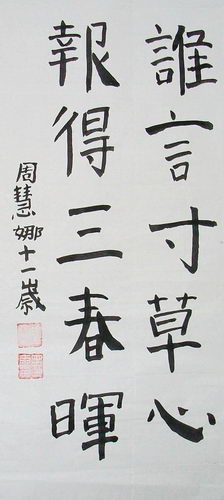 誰言寸草心
報得三春暉
周慧娜十一歲